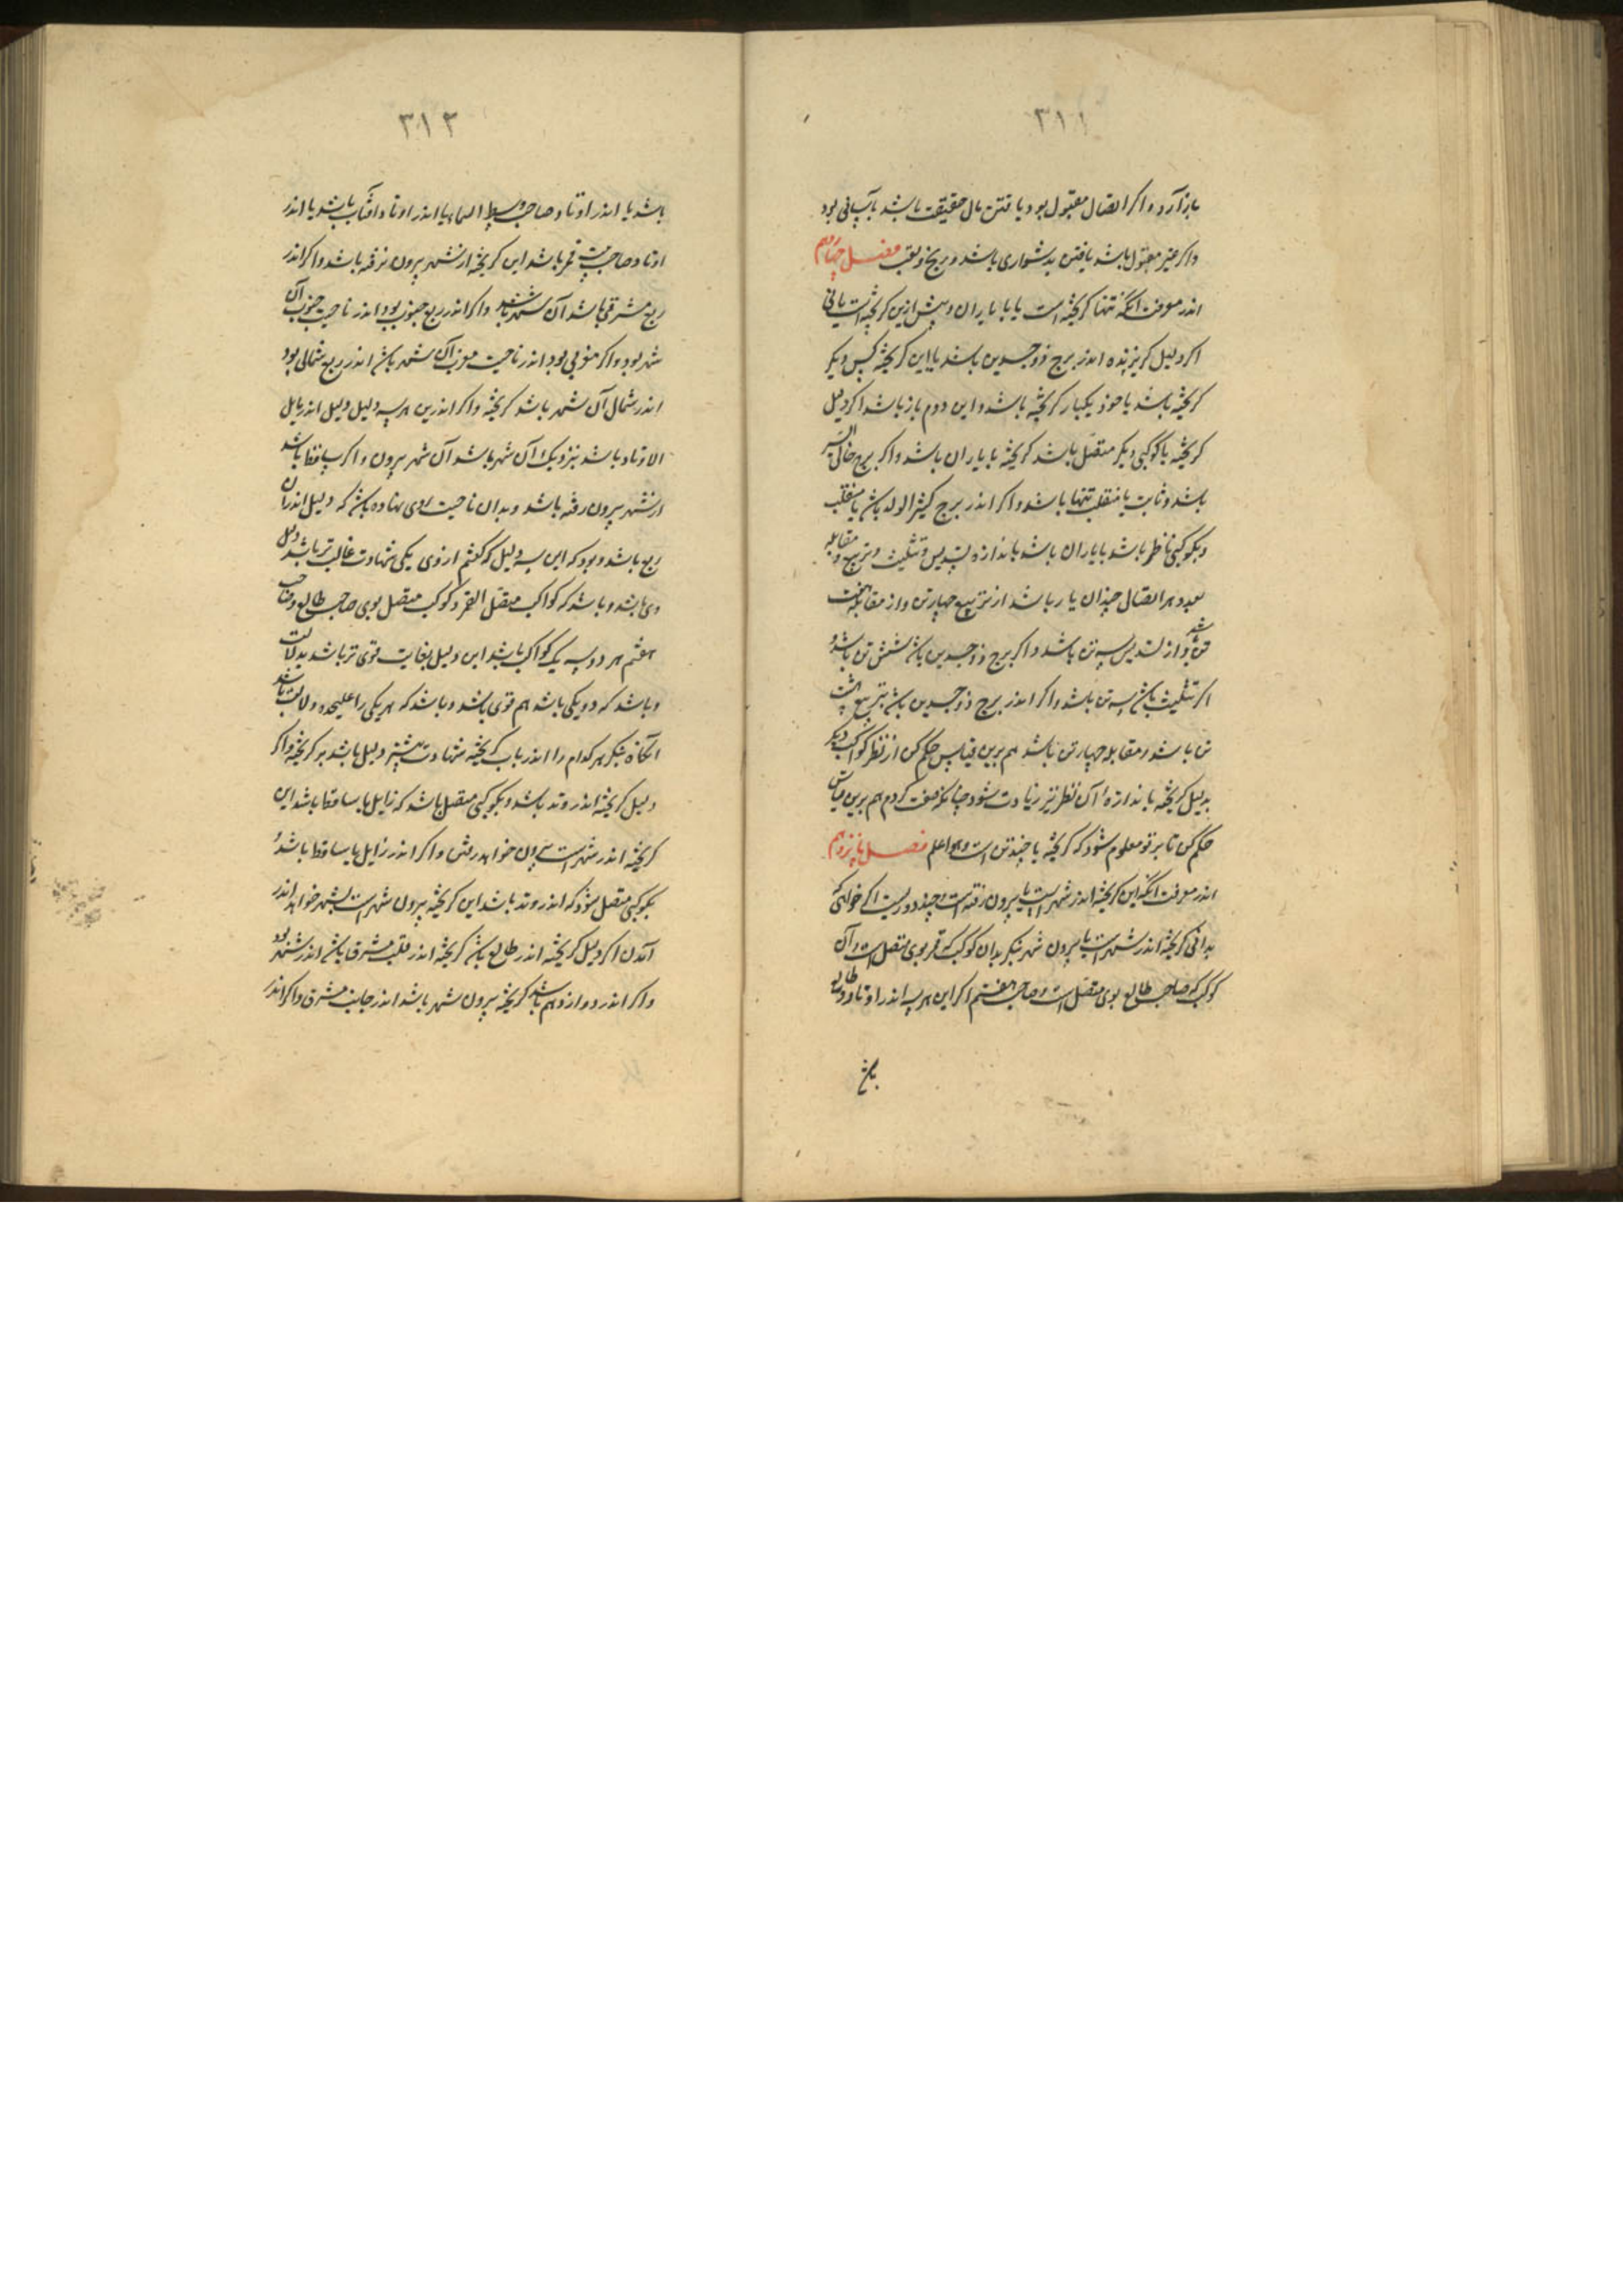 ۳۱۱
باز آرد و اکر اتصال مقبول بود یافتن مال حقیقت باشد بآسانی بود
واکر غیر مقبول باشد یافتن بدشواری باشد و برنج و تعب فصل چهاردهم
اندر معرفت آنکه تنها کریخته است یا با یاران و پیش ازین کریخته است یا نی
اکر دلیل کریزنده اندر برج ذوجسدین باشد با این کریخته کس دیکر
کریخته باشد یا خود یکبار کریخته باشد و این دوم باز باشد اکر دلیل
کریخته با کوکبی دیکر متصل باشد کریخته با یاران باشد واکر برج خالی السیر
باشد و ثابت یا منقلب تنها باشد واکر اندر برج کثیر الولد باشد یا منقلب
وبکوکبی ناظر باشد با یاران باشد باندازه تسدیس و تثلیث و تربیع و مقابله
بعدد هر اتصال چندان یار باشد از تربیع چهار تن و از مقابله هفت
تن بود و از تسدیس سه تن باشد واکر برج ذوجسدین باشد شش تن باشد و
اکر تثلیث باشد سه تن باشد واکر اندر برج ذوجسدین باشد بتربیع هشت
تن باشد و مقابله چهار تن باشد هم برین قیاس حکم کن از نظر کواکب دیکر
بدلیل کریخته باندازهٔ آن نظر نیز زیادت شود چنانکه صفت کردم هم برین قیاس
حکم کن تا بر تو معلوم شود که کریخته با چند تن است والله اعلم فصل پانزدهم
اندر معرفت آنکه این کریخته اندر شهر است یا بیرون رفته است و چند دور است اکر خواهی که
بدانی کریخته اندر شهر است یا بیرون شهر بنکر بدان کوکب که قمر بوی متصل است و آن
کوکب که صاحب طالع بوی متصل است و صاحب هفتم اکر این هر سه اندر اوتاد طالع
باشد
۳۱۲
باشد یا اندر اوتاد صاحب وسط السما یا اندر اوتاد آفتاب باشد یا اندر
اوتاد صاحب بیت قمر باشد این کریخته از شهر بیرون نرفته باشد واکر اندر
ربع مشرقی باشد آن شهر باشد واکر اندر ربع جنوب بود اندر ناحیت جنوب آن
شهر بود واکر مغربی بود اندر ناحیت مغرب آن شهر باشد اندر ربع شمالی بود
اندر شمال آن شهر باشد کریخته واکر اندرین هر سه دلیل دلیل اندر مایل
الاوتاد باشد نزدیک آن شهر باشد آن شهر بیرون واکر ساقط باشد
از شهر بیرون رفته باشد و بدان ناحیت روی نهاده باشد که دلیل اندر آن
ربع باشد و بود که این سه دلیل که کفتم از وی یکی شهادت غالب تر باشد دلیل
وی باشد و باشد که کواکب متصل القمر و کوکب متصل بوی صاحب طالع و صاحب
هفتم هر دو سه یک کواکب باشد این دلیل بغایت قوی تر باشد بدلالت
و باشد که دو یکی باشد هم قوی باشد و باشد که هر یکی را علیحده دلالت باشد
آنکاه بنکر هر کدام را اندر باب کریخته شهادت بیشتر دلیل باشد بر کریخته واکر
دلیل کریخته اندر وتد باشد و بکوکبی متصل باشد که زایل یا ساقط باشد این
کریخته اندر شهر است بیرون خواهد رفتن واکر اندر زایل یا ساقط باشد و
بکوکبی متصل شود که اندر وتد باشد این کریخته بیرون شهر است بشهر خواهد اندر
آمدن اکر دلیل کریخته اندر طالع باشد کریخته اندر قلب مشرق باشد اندر شهر بود
واکر اندر دوازدهم باشد کریخته بیرون شهر باشد اندر جانب مشرق واکر اندر